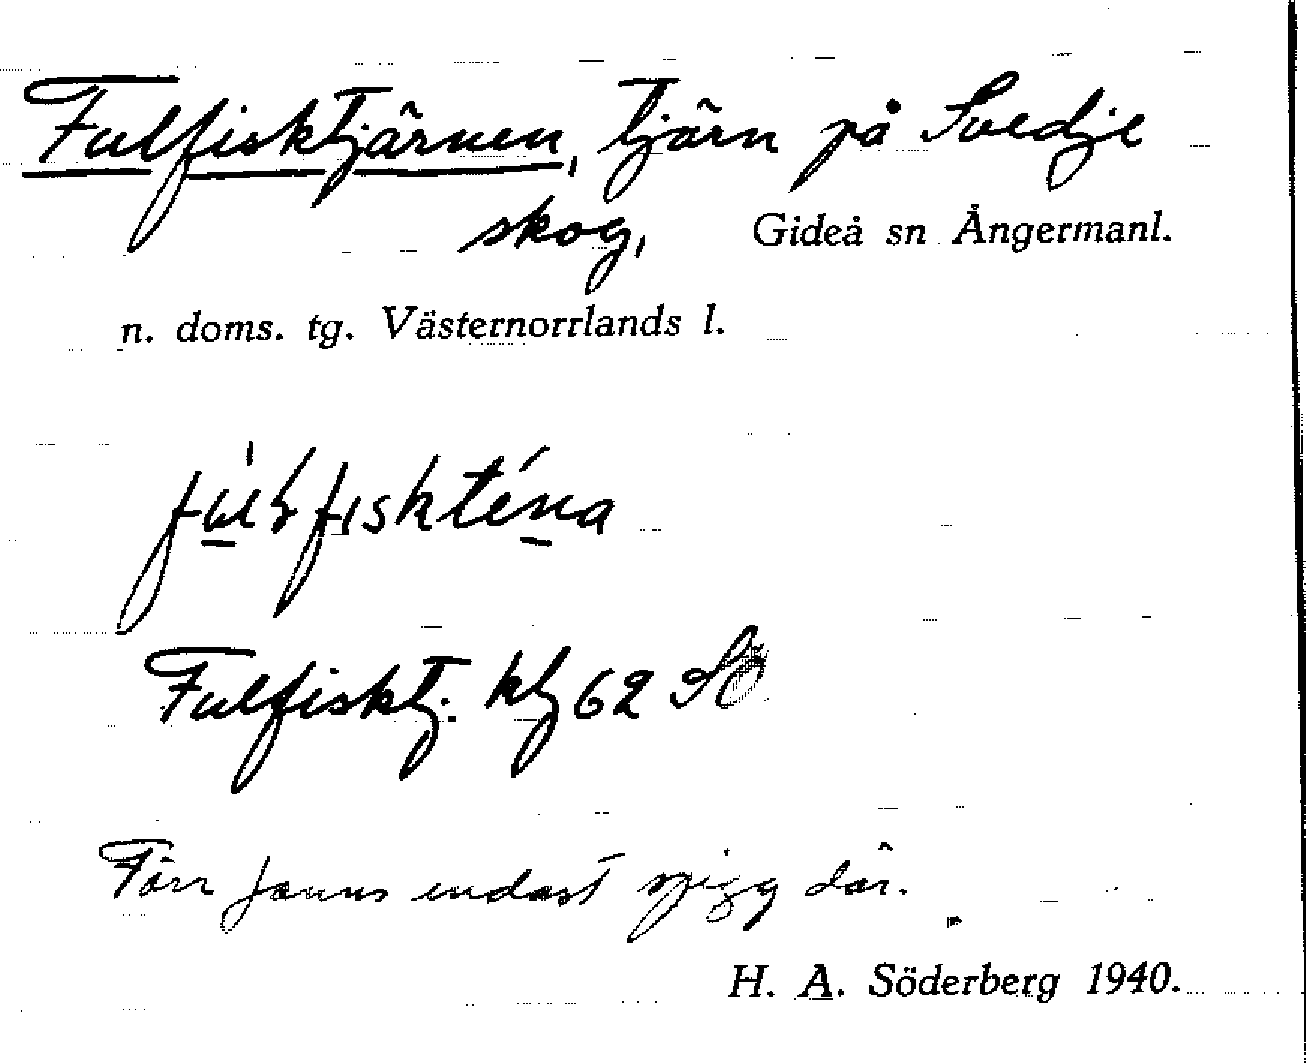 Fulfisktjärnen, tjärn på Svedje
skog, Gideå sn Ångermanl.
n. doms. tg. Västernorrlands l.
Fulfisktj. 62 SÖ
Förr fanns endast spigg där.
H. A. Söderberg 1940.